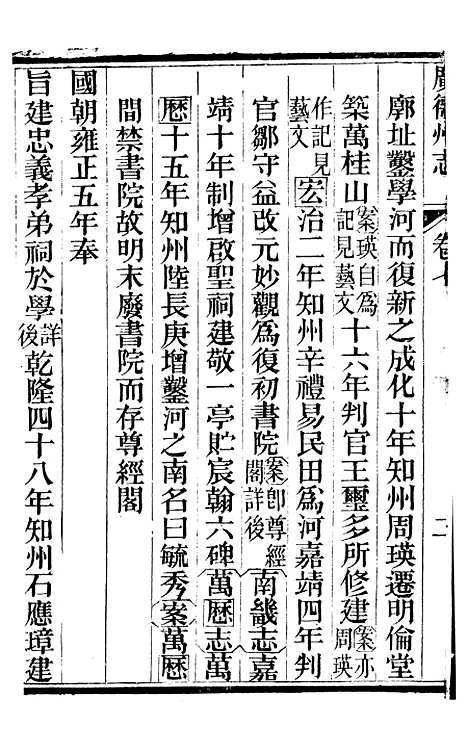 廣德州志 卷七 二
郭址鑿學河而復新之成化十年知州周瑛遷明倫堂
築萬桂山案瑛自為記見藝文十六年判官王璽多所修建案亦周瑛
作記見藝文宏治二年知州辛禮易民田爲河嘉靖四年判
官鄒守益改元妙觀爲復初書院案卽尊經閣詳後南畿志嘉
靖十年制增啟聖祠建敬一亭貯宸翰六碑萬曆志萬
曆十五年知州陸長庚增鑿河之南名曰毓秀案萬曆
間禁書院故明末廢書院而存尊經閣
國朝雍正五年奉
旨建忠義孝弟祠於學詳後乾隆四十八年知州石應璋建